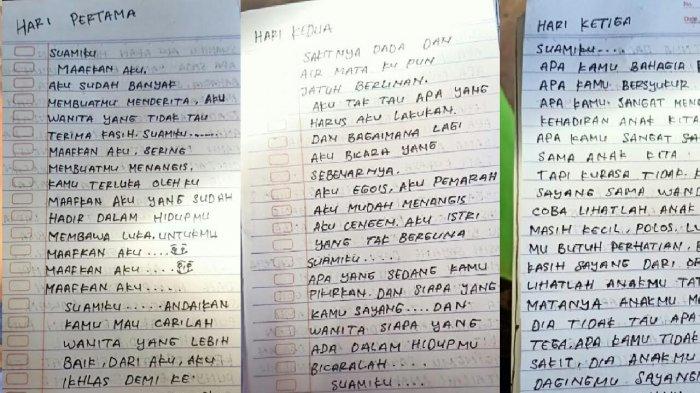 HARI PERTAMA
SUAMIKU
MAAFKAN AKU.
AKU SUDAH BANYAK
MEMBUATMU MENDERITA, AKU
WANITA YANG TIDAK TAU
TERIMA KASIH. SUAMIKU.......
MAAFKAN AKU, SERING
MEMBUATMU MENANGIS.
KAMU TERLUKA OLEH KU
MAAFKAN AKU YANG SUDAH
HADIR DALAM HIDUPMU
MEMBAWA LUKA, UNTUKMU
MAAFKAN AKU....
MAAFKAN AKU....
MAAFKAN AKU......
SUAMIKU.....ANDAIKAN
KAMU MAU CARILAH
WANITA YANG LEBIH
BAIK, DARI AKU, AKU
IKHLAS DEMI KE
HARI KEDUA
SAKITNYA DADA DAN
AIR MATA KU PUN
JATUH BERLINAN.
AKU TAK TAU APA YANG
HARUS AKU LAKUKAN.
DAN BAGAIMANA LAGI
AKU BICARA YANG
SEBENARNYA.
AKU EGOIS, AKU PEMARAH
AKU MUDAH MENANGIS
AKU CENGEM. AKU ISTRI
YANG TAK BERGUNA
SUAMIKU.....
APA YANG SEDANG KAMU
PIKIRKAN. DAN SIAPA YANG
KAMU SAYANG....DAN
WANITA SIAPA YANG
ADA DALAM HIDUPMU
BICARALAH.....
SUAMIKU....
HARI KETIGA
SUAMIKU....
APA KAMU BAHAGIA
APA KAMU BERSYUKUR
APA KAMU. SANGAT MEN
KEHADIRAN ANAK KITA
APA KAMU SANGAT
SAMA ANAK KITA
TAPI KURASA TIDAK
SAYANG SAMA WAN
COBA LIHATLAH. ANAK
MASIH KECIL, POLOS, L
MU BUTUH PERHATIAN.
KASIH SAYANG DARI
LIHATLAH ANAKMU TAT
MATANYA ANAKMU M
DIA TIDAK TAU APA
TEGA, APA KAMU TIDAK
SAKIT, DIA ANAKMU
DAGINGMU SAYANG